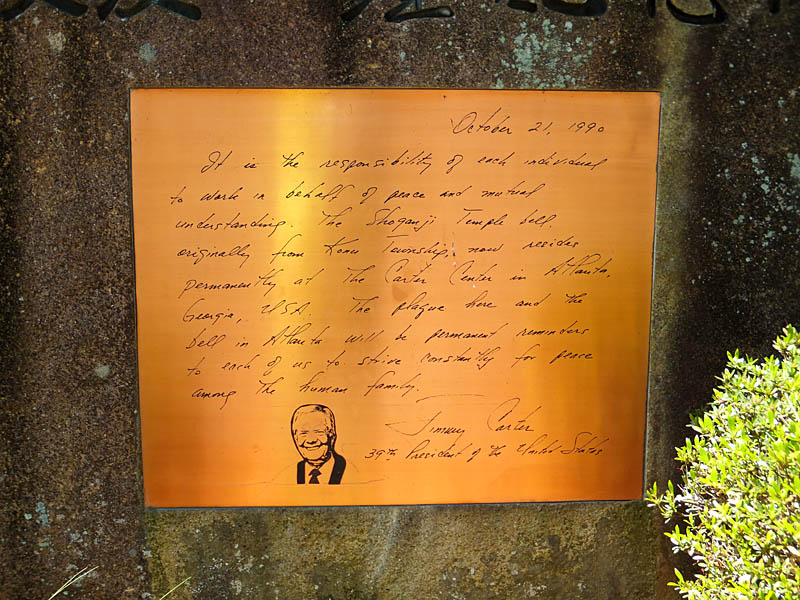 October 21, 1990
It is the responsibility of each individual
to work in behalf of peace and mutual
understanding. The Shoganji Temple bell,
originally from Konu Township, now resides
permanently at The Carter Center in Atlanta,
Georgia, USA. The plaque here and the
bell in Atlanta will be permanent reminders
to each of us to strive constantly for peace
among the human family.
Jimmy Carter
39th President of the United States